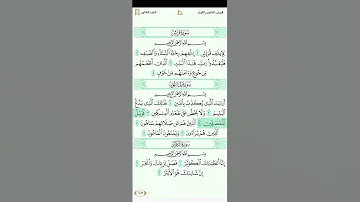 الجزء الثلاثون
سُورَةُ قُرَيْشٍ
بِسْمِ ٱللَّهِ ٱلرَّحْمَٰنِ ٱلرَّحِيمِ
لِإِيلَٰفِ قُرَيْشٍ ١ إِۦلَٰفِهِمْ رِحْلَةَ ٱلشِّتَآءِ وَٱلصَّيْفِ ٢
فَلْيَعْبُدُوا۟ رَبَّ هَٰذَا ٱلْبَيْتِ ٣ ٱلَّذِىٓ أَطْعَمَهُم
مِّن جُوعٍ وَءَامَنَهُم مِّنْ خَوْفٍۭ ٤
سُورَةُ المَاعُونِ
بِسْمِ ٱللَّهِ ٱلرَّحْمَٰنِ ٱلرَّحِيمِ
أَرَءَيْتَ ٱلَّذِى يُكَذِّبُ بِٱلدِّينِ ١ فَذَٰلِكَ ٱلَّذِى يَدُعُّ
ٱلْيَتِيمَ ٢ وَلَا يَحُضُّ عَلَىٰ طَعَامِ ٱلْمِسْكِينِ ٣ فَوَيْلٌ
لِّلْمُصَلِّينَ ٤ ٱلَّذِينَ هُمْ عَن صَلَاتِهِمْ سَاهُونَ ٥
ٱلَّذِينَ هُمْ يُرَآءُونَ ٦ وَيَمْنَعُونَ ٱلْمَاعُونَ ٧
سُورَةُ الكَوْثَرِ
بِسْمِ ٱللَّهِ ٱلرَّحْمَٰنِ ٱلرَّحِيمِ
إِنَّآ أَعْطَيْنَٰكَ ٱلْكَوْثَرَ ١ فَصَلِّ لِرَبِّكَ وَٱنْحَرْ ٢
إِنَّ شَانِئَكَ هُوَ ٱلْأَبْتَرُ ٣